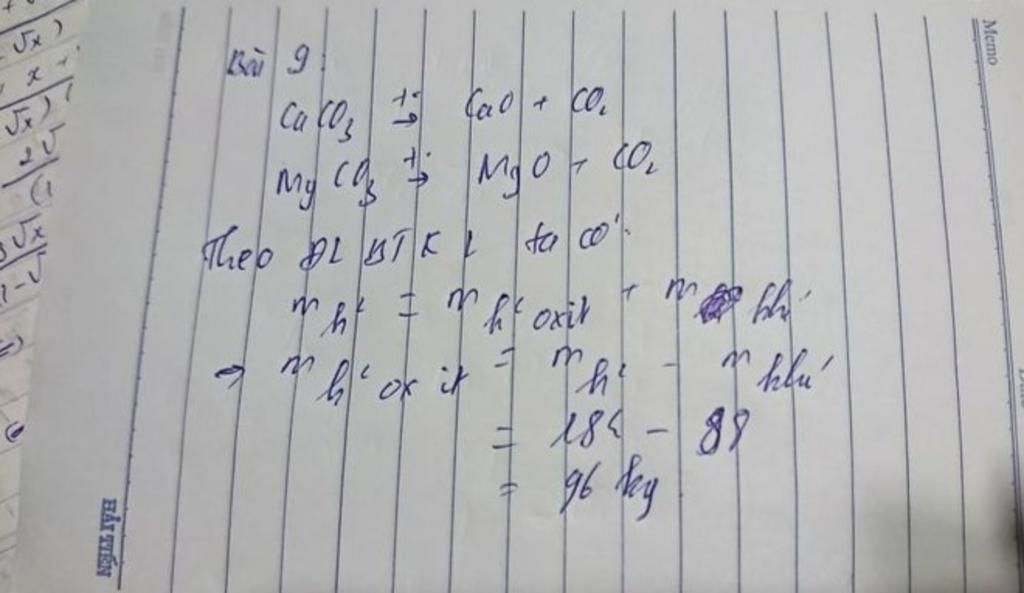 Bài 9:
CaCO₃ t°→ CaO + CO₂
MgCO₃ t°→ MgO + CO₂
Theo ĐL BTKL ta có:
m h² = m h² oxit + m khí
→ m h² oxit = m h² - m khí
= 184 - 88
= 96 kg
Memo
HẢI TIẾN
√x)
x +
√x)
2√
3√x
1-√